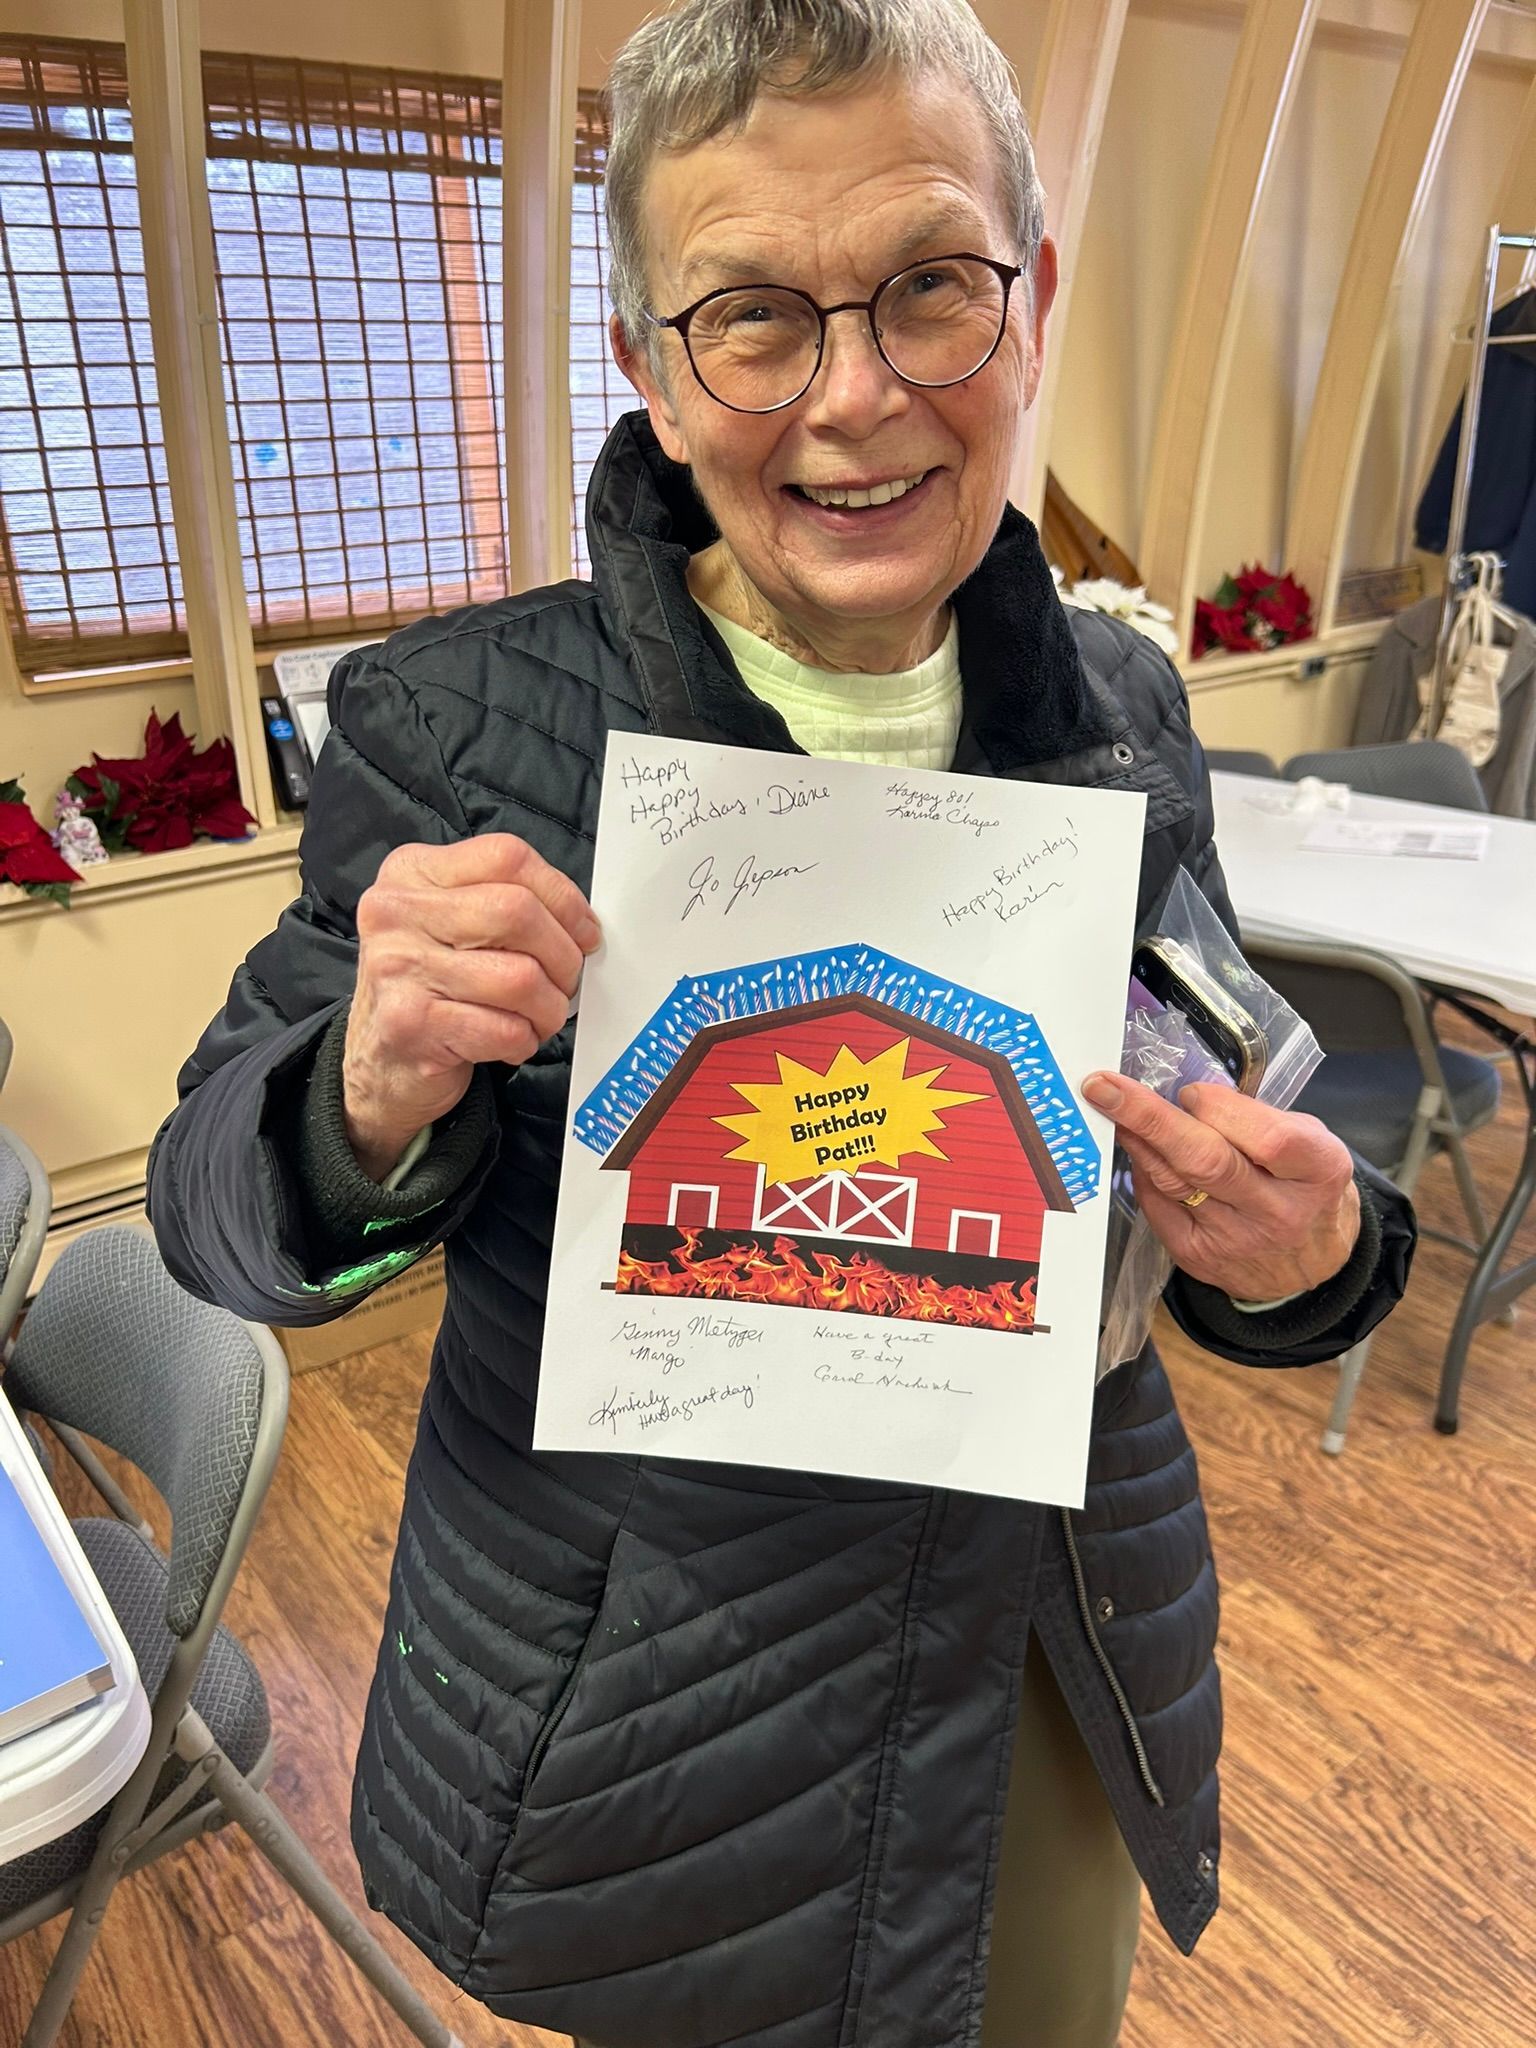 Happy
Happy
Birthday, Diane
Happy 80!
Karina
Jo Jepson
Happy Birthday!
Karin
Happy
Birthday
Pat!!!
Ginny Metzger
"Margo"
Have a great
B-day
Carol
Kimberly
Have a great day!